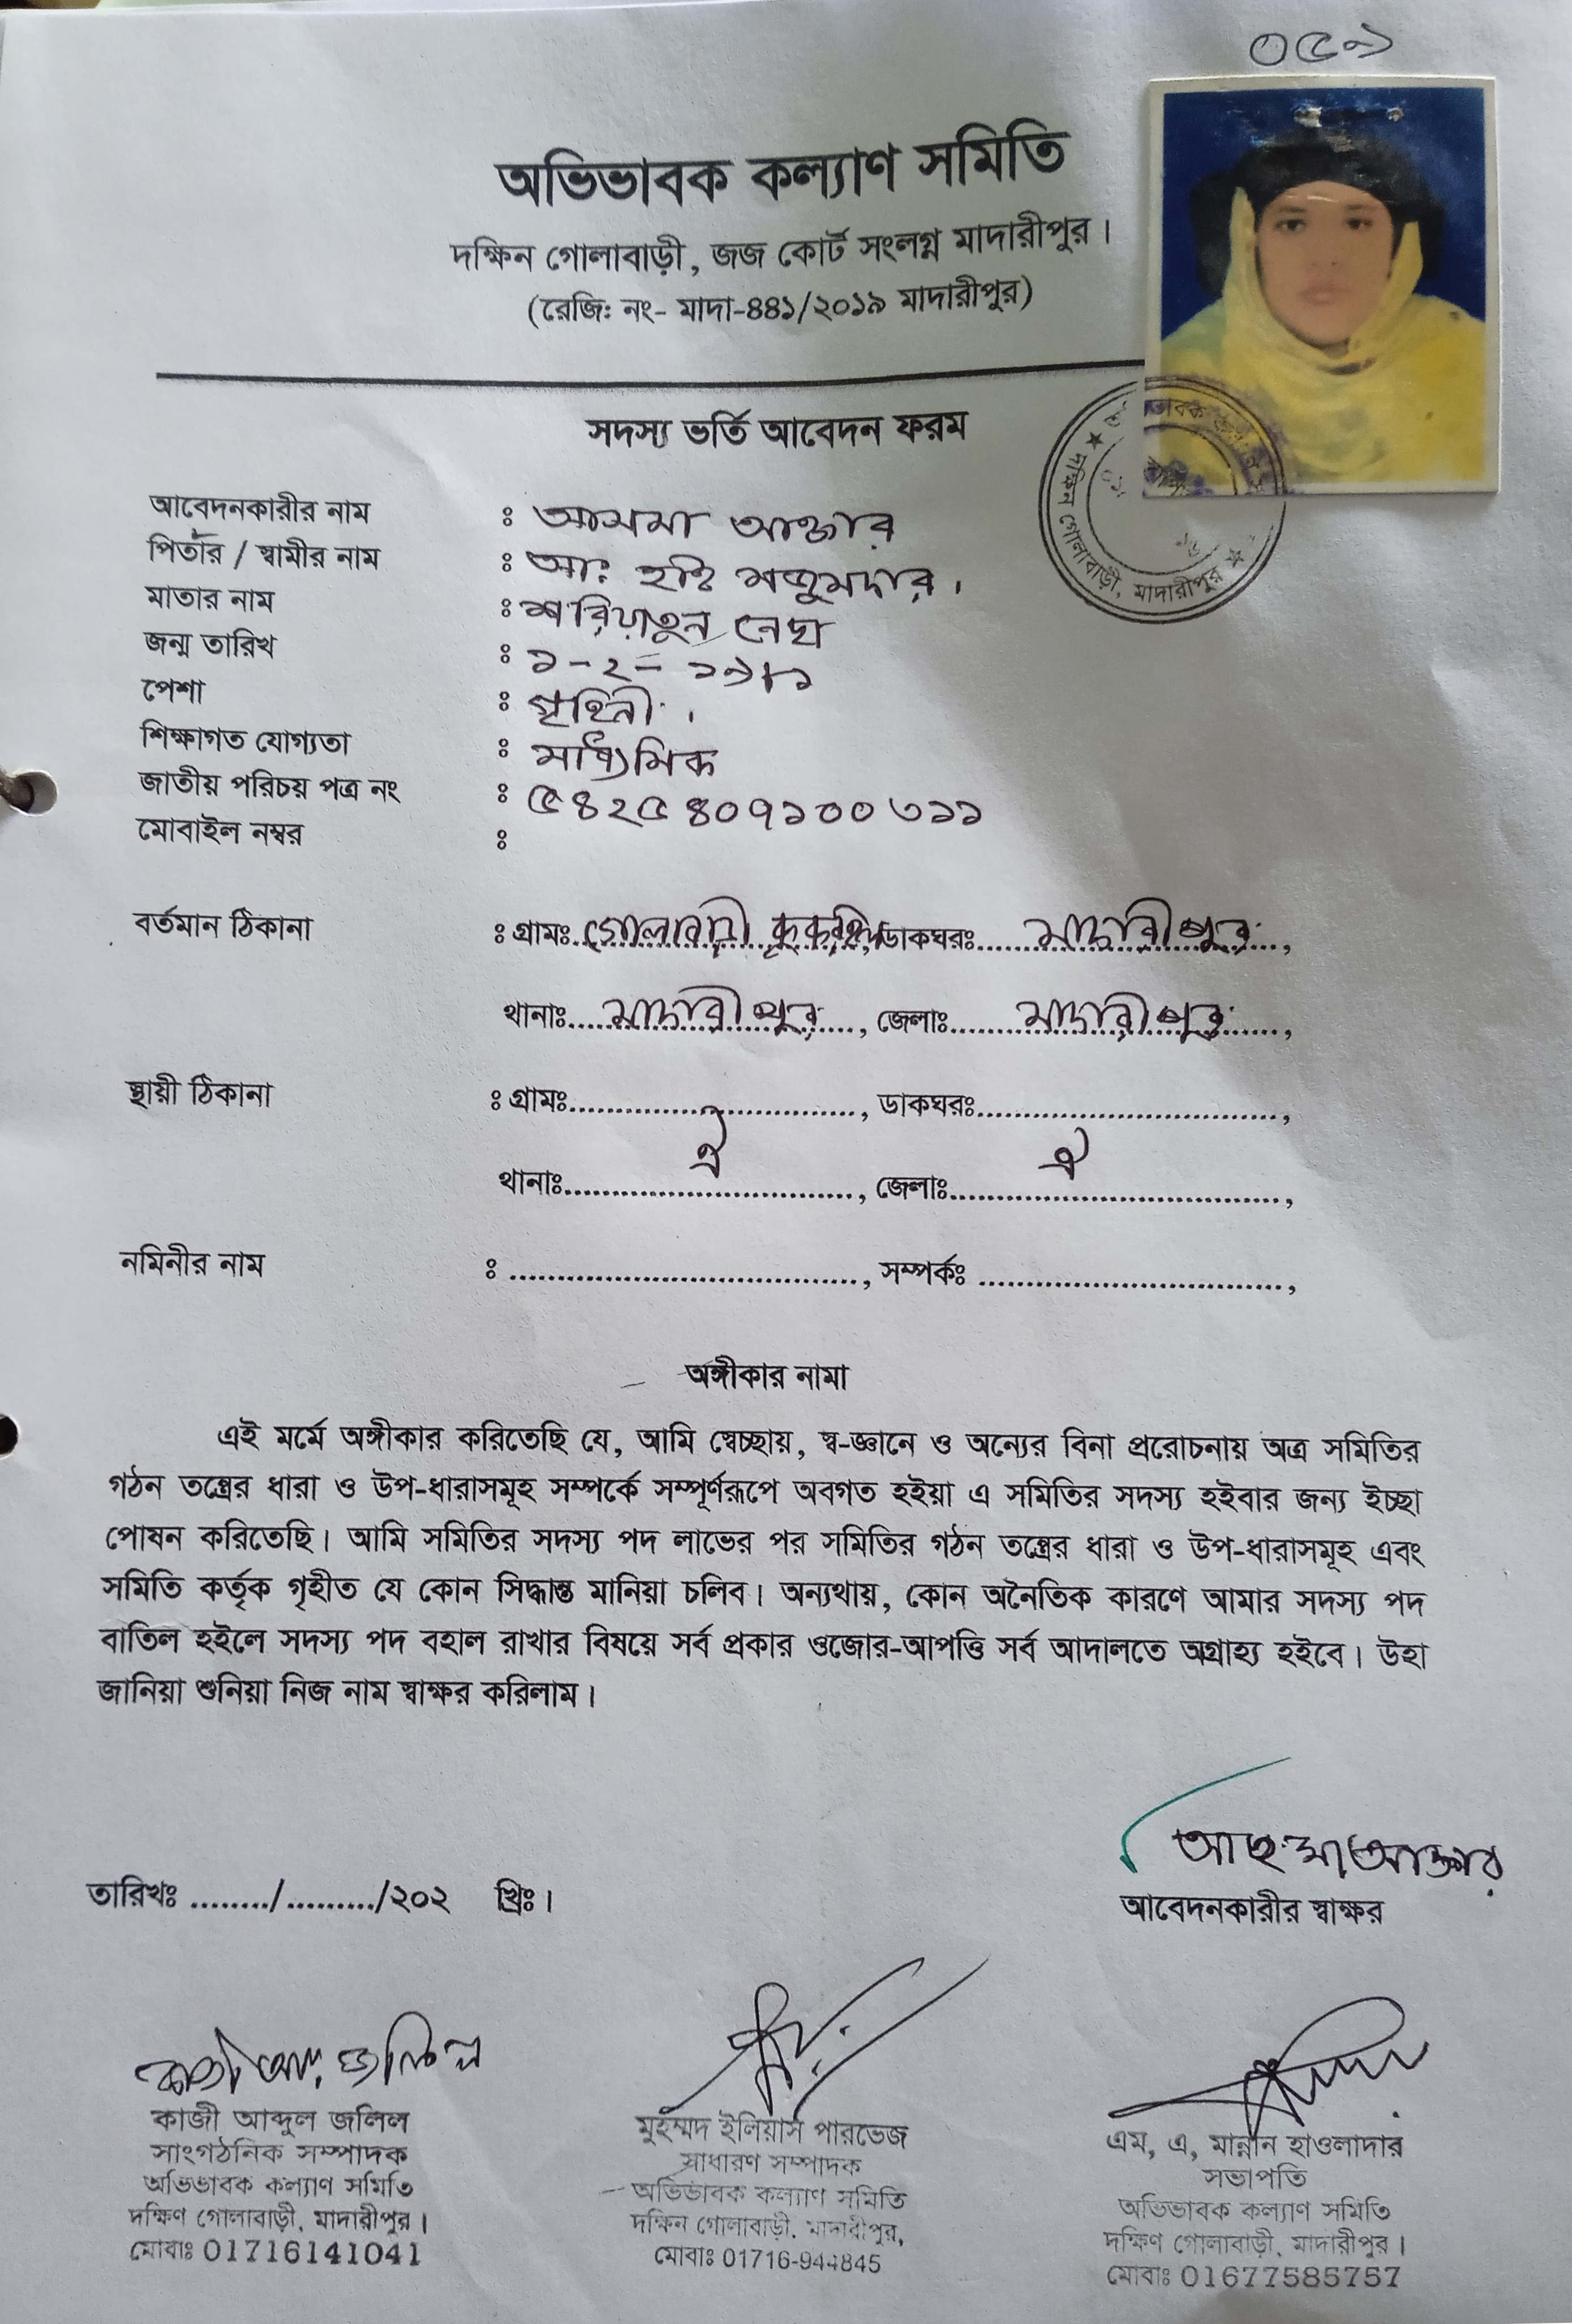 ০৫৯
অভিভাবক কল্যাণ সমিতি
দক্ষিন গোলাবাড়ী, জজ কোর্ট সংলগ্ন মাদারীপুর।
(রেজি: নং- মাদা-৪৪১/২০১৯ মাদারীপুর)
সদস্য ভর্তি আবেদন ফরম
আবেদনকারীর নাম : আসমা আক্তার
পিতার / স্বামীর নাম : আঃ হাই মজুমদার।
মাতার নাম : নেছা
জন্ম তারিখ : ১-২-
পেশা : গৃহিনী।
শিক্ষাগত যোগ্যতা : মাধ্যমিক
জাতীয় পরিচয় পত্র নং : ৫৪২৫৪০৭১০০৩১১
মোবাইল নম্বর :
বর্তমান ঠিকানা : গ্রামঃ গোলাবাড়ী কুকরাইল, ডাকঘরঃ মাদারীপুর,
থানাঃ মাদারীপুর, জেলাঃ মাদারীপুর,
স্থায়ী ঠিকানা : গ্রামঃ...................., ডাকঘরঃ....................,
থানাঃ ঐ, জেলাঃ ঐ,
নমিনীর নাম : ...................., সম্পর্কঃ ....................,
অঙ্গীকার নামা
এই মর্মে অঙ্গীকার করিতেছি যে, আমি স্বেচ্ছায়, স্ব-জ্ঞানে ও অন্যের বিনা প্ররোচনায় অত্র সমিতির
গঠন তন্ত্রের ধারা ও উপ-ধারাসমূহ সম্পর্কে সম্পূর্ণরূপে অবগত হইয়া এ সমিতির সদস্য হইবার জন্য ইচ্ছা
পোষন করিতেছি। আমি সমিতির সদস্য পদ লাভের পর সমিতির গঠন তন্ত্রের ধারা ও উপ-ধারাসমূহ এবং
সমিতি কর্তৃক গৃহীত যে কোন সিদ্ধান্ত মানিয়া চলিব। অন্যথায়, কোন অনৈতিক কারণে আমার সদস্য পদ
বাতিল হইলে সদস্য পদ বহাল রাখার বিষয়ে সর্ব প্রকার ওজোর-আপত্তি সর্ব আদালতে অগ্রাহ্য হইবে। উহা
জানিয়া শুনিয়া নিজ নাম স্বাক্ষর করিলাম।
আছমা আক্তার
তারিখঃ ......../........./২০২ খ্রিঃ।
আবেদনকারীর স্বাক্ষর
কাজী আঃ জলিল
কাজী আব্দুল জলিল
সাংগঠনিক সম্পাদক
অভিভাবক কল্যাণ সমিতি
দক্ষিণ গোলাবাড়ী, মাদারীপুর।
মোবাঃ 01716141041
মুহম্মদ ইলিয়াস পারভেজ
সাধারণ সম্পাদক
অভিভাবক কল্যাণ সমিতি
দক্ষিন গোলাবাড়ী, মাদারীপুর,
মোবাঃ 01716-944845
এম, এ, মান্নান হাওলাদার
সভাপতি
অভিভাবক কল্যাণ সমিতি
দক্ষিণ গোলাবাড়ী, মাদারীপুর।
মোবাঃ 01677585757
দক্ষিন গোলাবাড়ী, মাদারীপুর